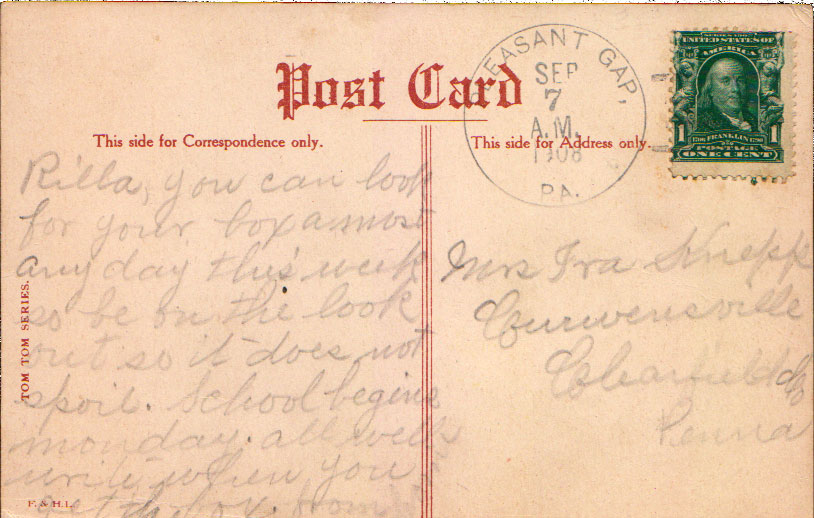 Post Card
This side for Correspondence only.
This side for Address only.
PLEASANT GAP,
SEP
7
A.M.
1908
PA.
SERIES 1902
UNITED STATES OF
AMERICA
1 1706 FRANKLIN 1790 1
POSTAGE
ONE CENT
Rilla, you can look
for your box a most
any day this week
so be on the look
out so it does not
spoil. School begins
monday. all well
write when you
get the box. from
Mrs Ira Knepp
Curwensville
Clearfield Co
Penna
TOM TOM SERIES.
F. & H.L.